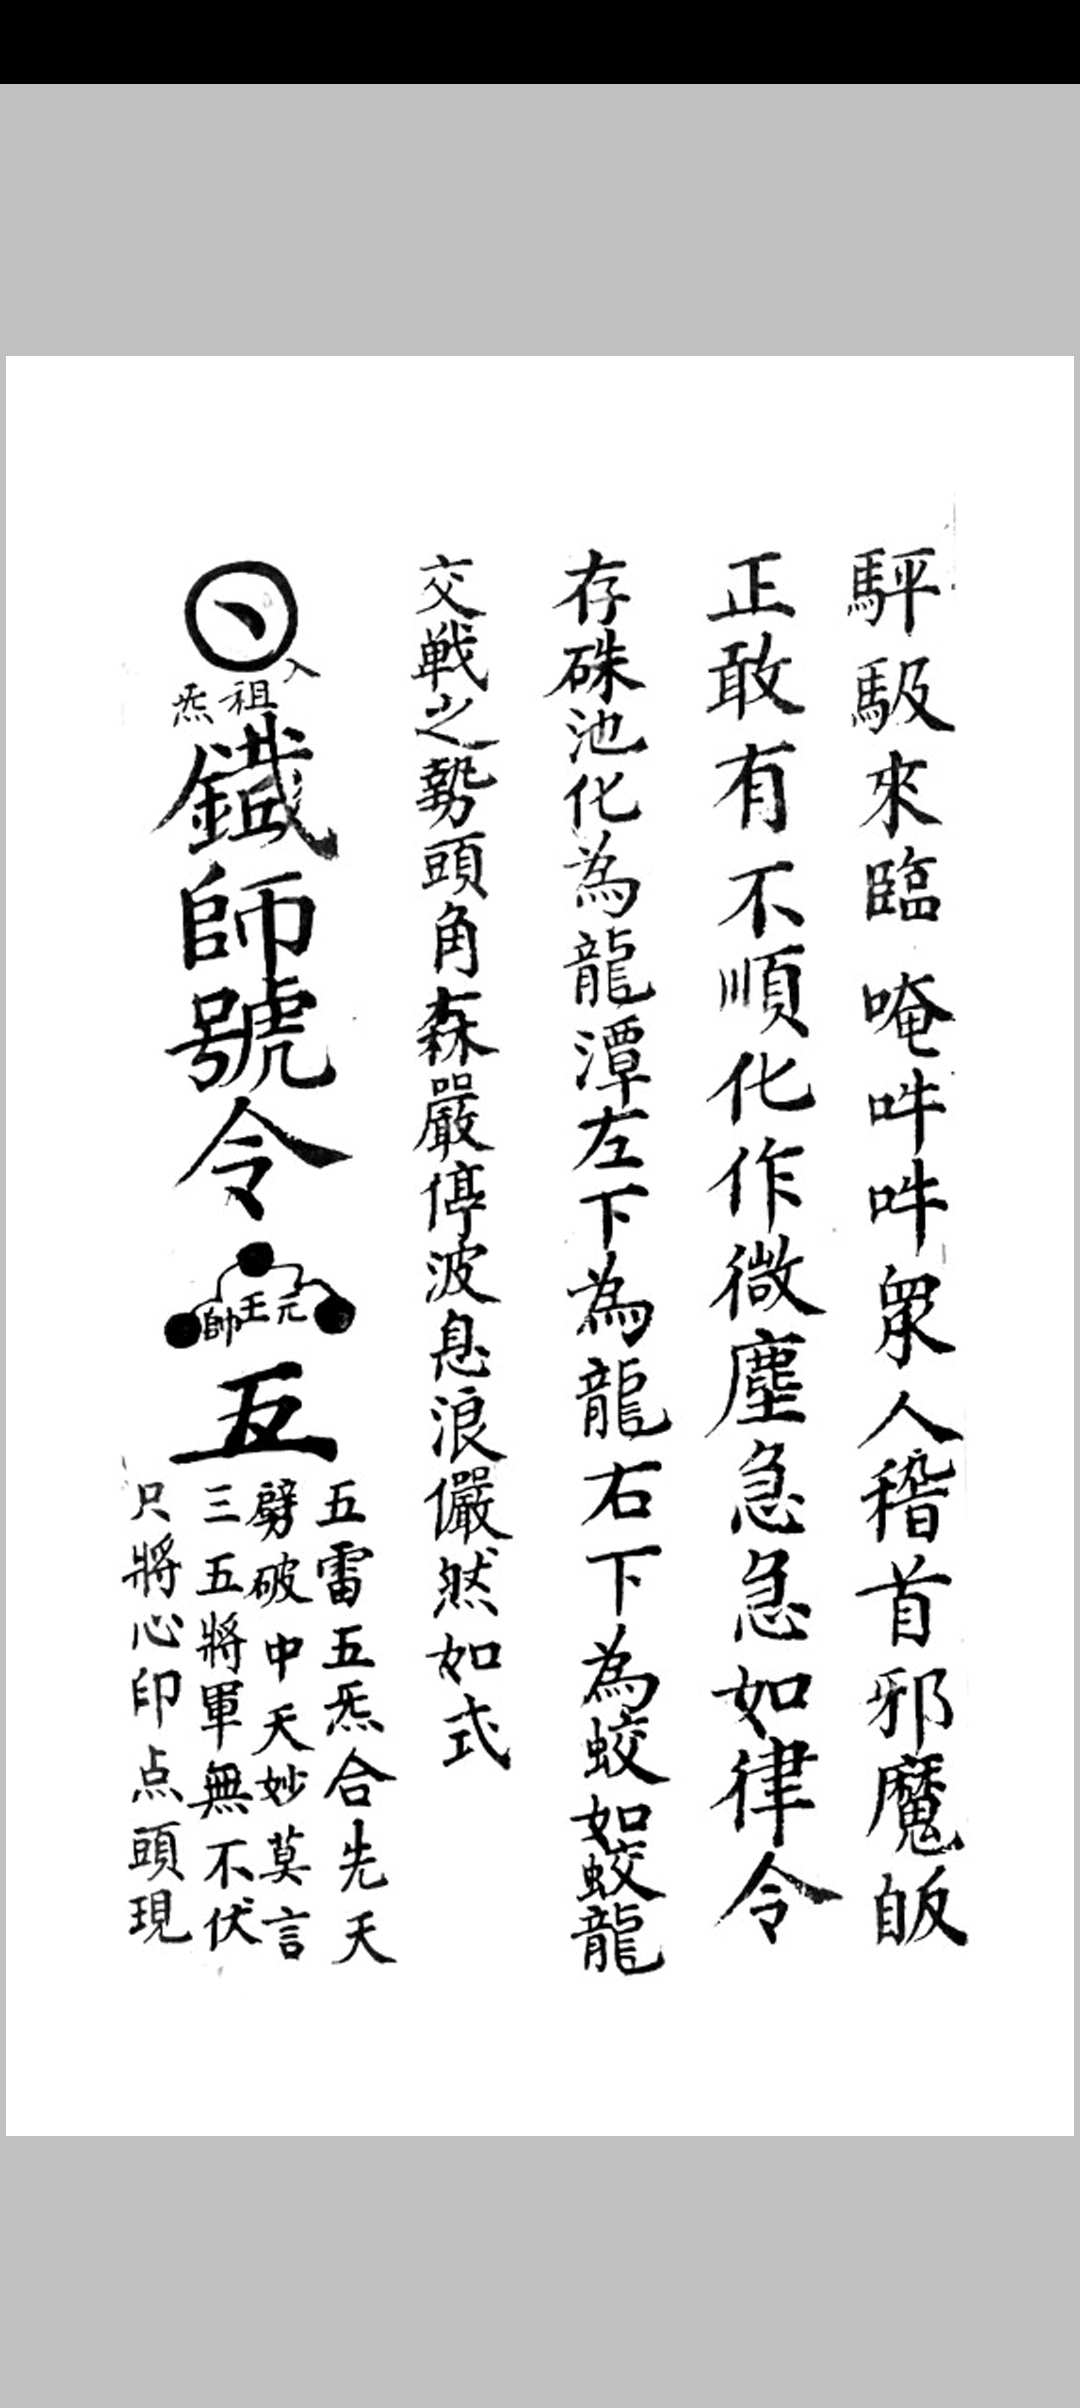 駍馺來臨唵吽吽衆人稽首邪魔皈
正敢有不順化作微塵急急如律令
存硃池化為龍潭左下為龍右下為蛟如蛟龍
交戦之勢頭角森嚴停波息浪儼然如式
入
祖
炁
鐵師號令
元王帥
五
五雷五炁合先天
劈破中天妙莫言
三五將軍無不伏
只將心印点頭現